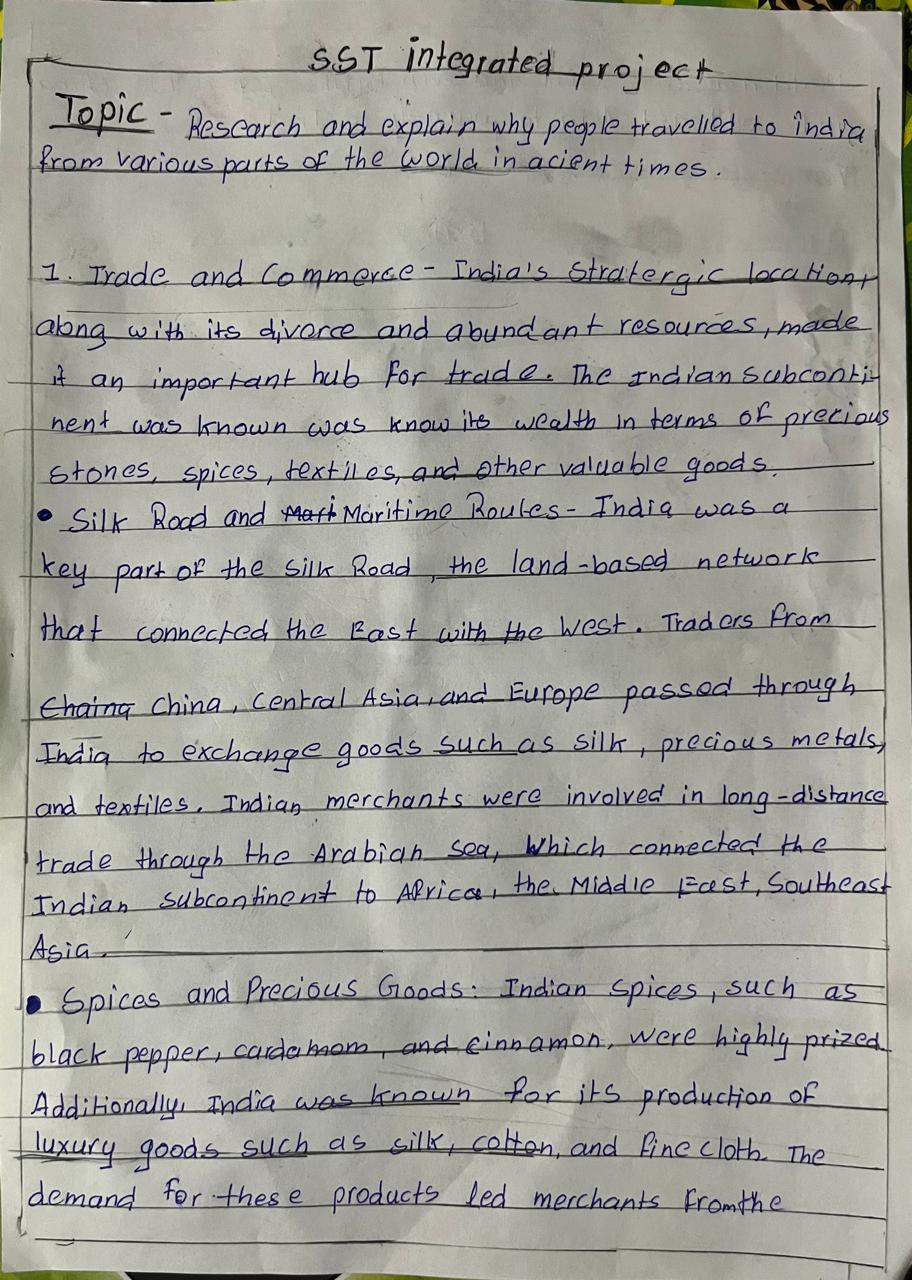 SST integrated project
Topic - Research and explain why people travelled to india
from various parts of the world in acient times.
1. Trade and Commerce - India's Stratergic location,
along with its divorce and abundant resources, made
it an important hub for trade. The Indian Subconti-
nent was known was know its wealth in terms of precious
stones, spices, textiles, and other valuable goods.
• Silk Road and Mari Maritime Routes - India was a
key part of the Silk Road, the land-based network
that connected the East with the West. Traders from
Chaina China, Central Asia, and Europe passed through
India to exchange goods such as silk, precious metals,
and textiles. Indian merchants were involved in long-distance
trade through the Arabian Sea, Which connected the
Indian subcontinent to Africa, the Middle East, Southeast
Asia.
• Spices and Precious Goods: Indian Spices, such as
black pepper, cardamom, and cinnamon, were highly prized.
Additionally, India was known for its production of
luxury goods such as silk, cotton, and fine cloth. The
demand for these products led merchants from the